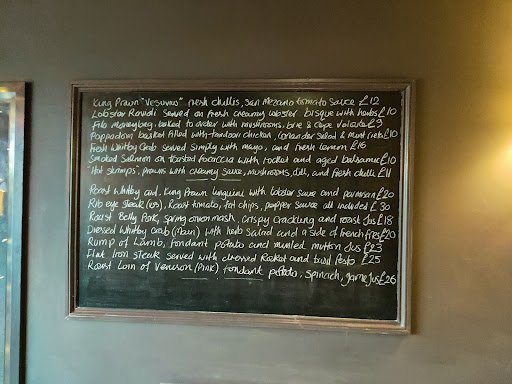 King Prawn "Vesuvius" fresh chillis, San Mezano tomato sauce £12
Lobster Ravioli served on fresh creamy lobster bisque with herbs £10
Filo Moneybag, baked to order with mushrooms, brie & cape volute £9
Poppadom basket filled with tandoori chicken, coriander salad & mint rieb £10
Fresh Whitby Crab served simply with mayo, and fresh lemon £16
Smoked Salmon on toasted focaccia with rocket and aged balsamic £10
'Hot shrimps', prawns with creamy sauce, mushrooms, dill, and fresh chilli £11
Roast Whitby cod, King Prawn linguini with lobster sauce and parmesan £20
Rib eye steak (10s), Roast tomato, fat chips, pepper sauce all included £30
Roast Belly Pork, spring onion mash, crispy crackling and roast Jus £18
Dressed Whitby Crab (main) with herb salad and a side of french fries £20
Rump of Lamb, fondant potato and minted mutton Jus £23
Flat Iron steak served with dressed Rocket and basil Pesto £25
Roast Loin of Venison (Pink) fondant potato, spinach, game Jus £26